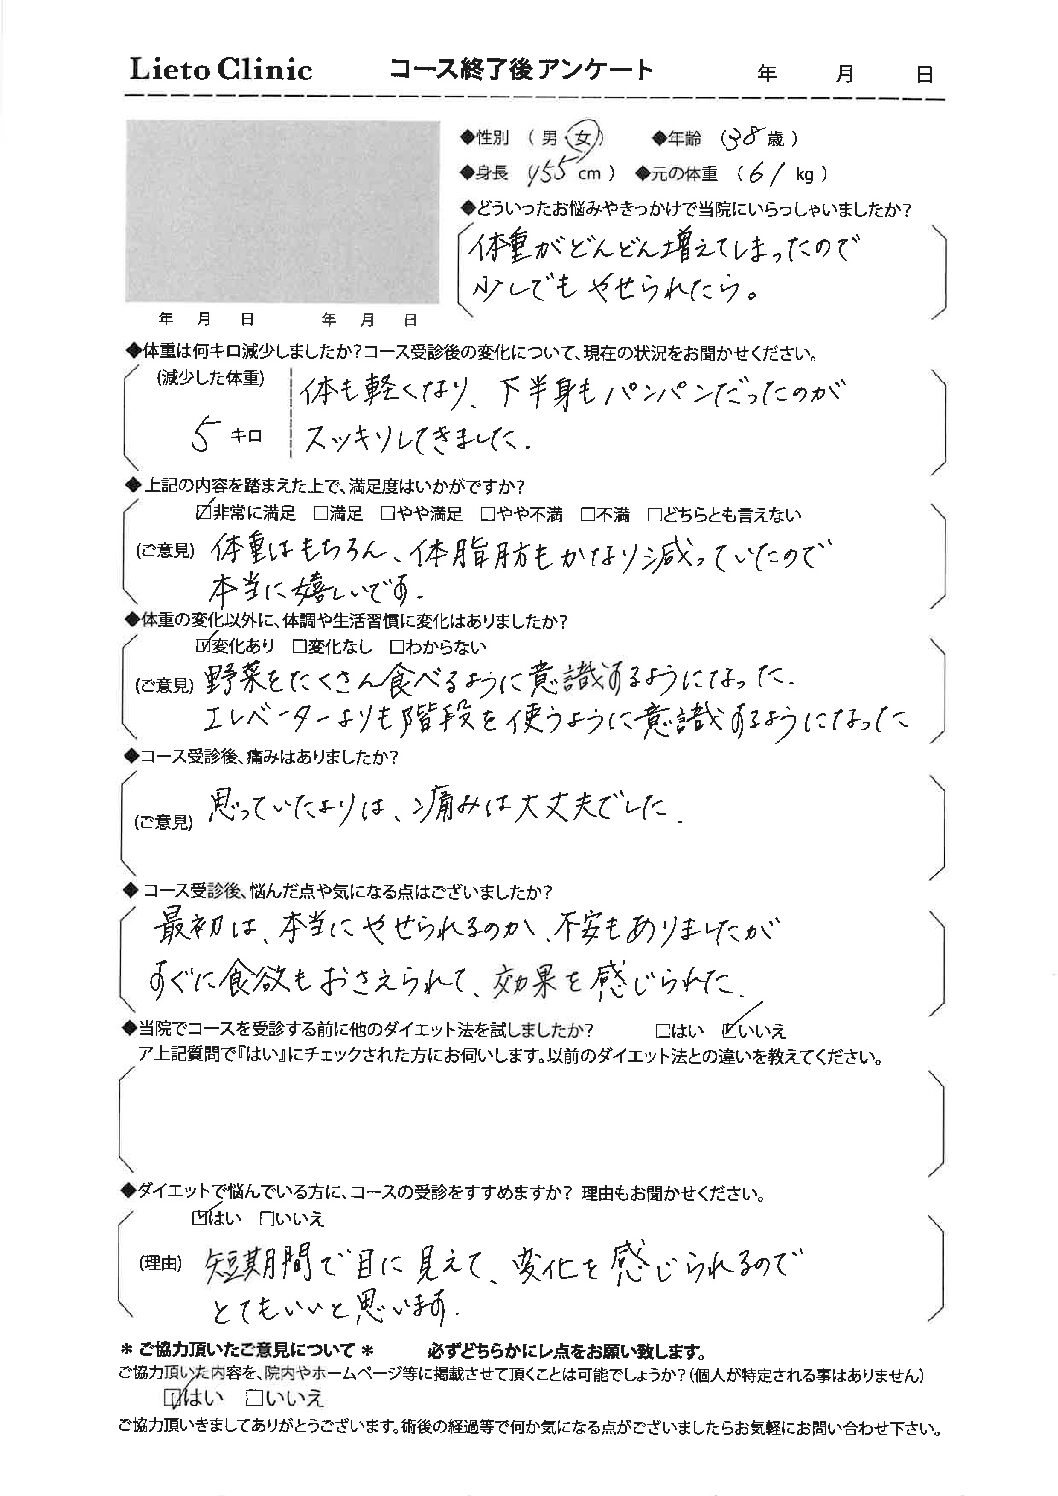 Lieto Clinic コース終了後アンケート 年 月 日
◆性別 (男・女) ◆年齢 (38歳)
◆身長 (155cm) ◆元の体重 (61kg)
◆どういったお悩みやきっかけで当院にいらっしゃいましたか?
体重がどんどん増えてしまったので
少しでもやせられたら。
年 月 日 年 月 日
◆体重は何キロ減少しましたか?コース受診後の変化について、現在の状況をお聞かせください。
(減少した体重) 体も軽くなり、下半身もパンパンだったのが
5キロ スッキリしてきました.
◆上記の内容を踏まえた上で、満足度はいかがですか?
☑非常に満足 □満足 □やや満足 □やや不満 □不満 □どちらとも言えない
(ご意見) 体重はもちろん、体脂肪もかなり減っていたので
本当に嬉しいです.
◆体重の変化以外に、体調や生活習慣に変化はありましたか?
☑変化あり □変化なし □わからない
(ご意見) 野菜をたくさん食べるように意識するようになった.
エレベーターよりも階段を使うように意識するようになった
◆コース受診後、痛みはありましたか?
(ご意見) 思っていたよりは、痛みは大丈夫でした.
◆コース受診後、悩んだ点や気になる点はございましたか?
最初は、本当にやせられるのか、不安もありましたが
すぐに食欲もおさえられて、効果を感じられた.
◆当院でコースを受診する前に他のダイエット法を試しましたか? □はい ☑いいえ
ア上記質問で『はい』にチェックされた方にお伺いします。以前のダイエット法との違いを教えてください。
◆ダイエットで悩んでいる方に、コースの受診をすすめますか? 理由もお聞かせください。
☑はい □いいえ
(理由) 短期間で目に見えて、変化を感じられるので
とてもいいと思います.
＊ご協力頂いたご意見について＊ 必ずどちらかにレ点をお願い致します。
ご協力頂いた内容を、院内やホームページ等に掲載させて頂くことは可能でしょうか?(個人が特定される事はありません)
☑はい □いいえ
ご協力頂いきましてありがとうございます。術後の経過等で何か気になる点がございましたらお気軽にお問い合わせ下さい。